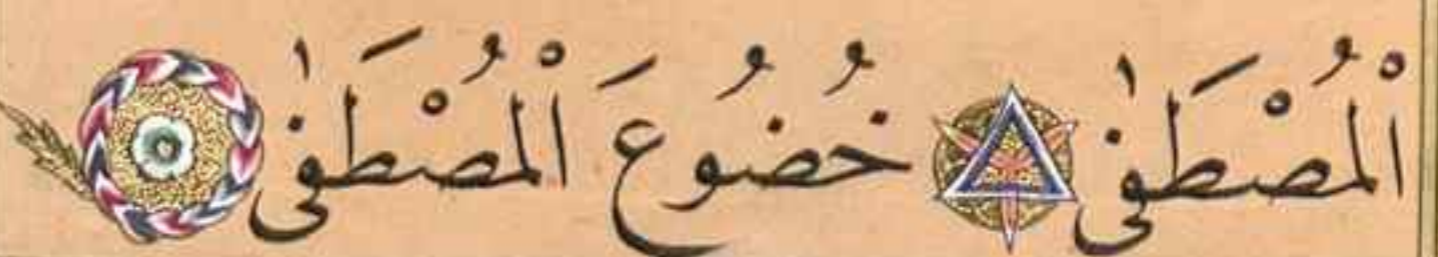 ٱلْمُصْطَفَىٰ خُضُوعَ ٱلْمُصْطَفَىٰ